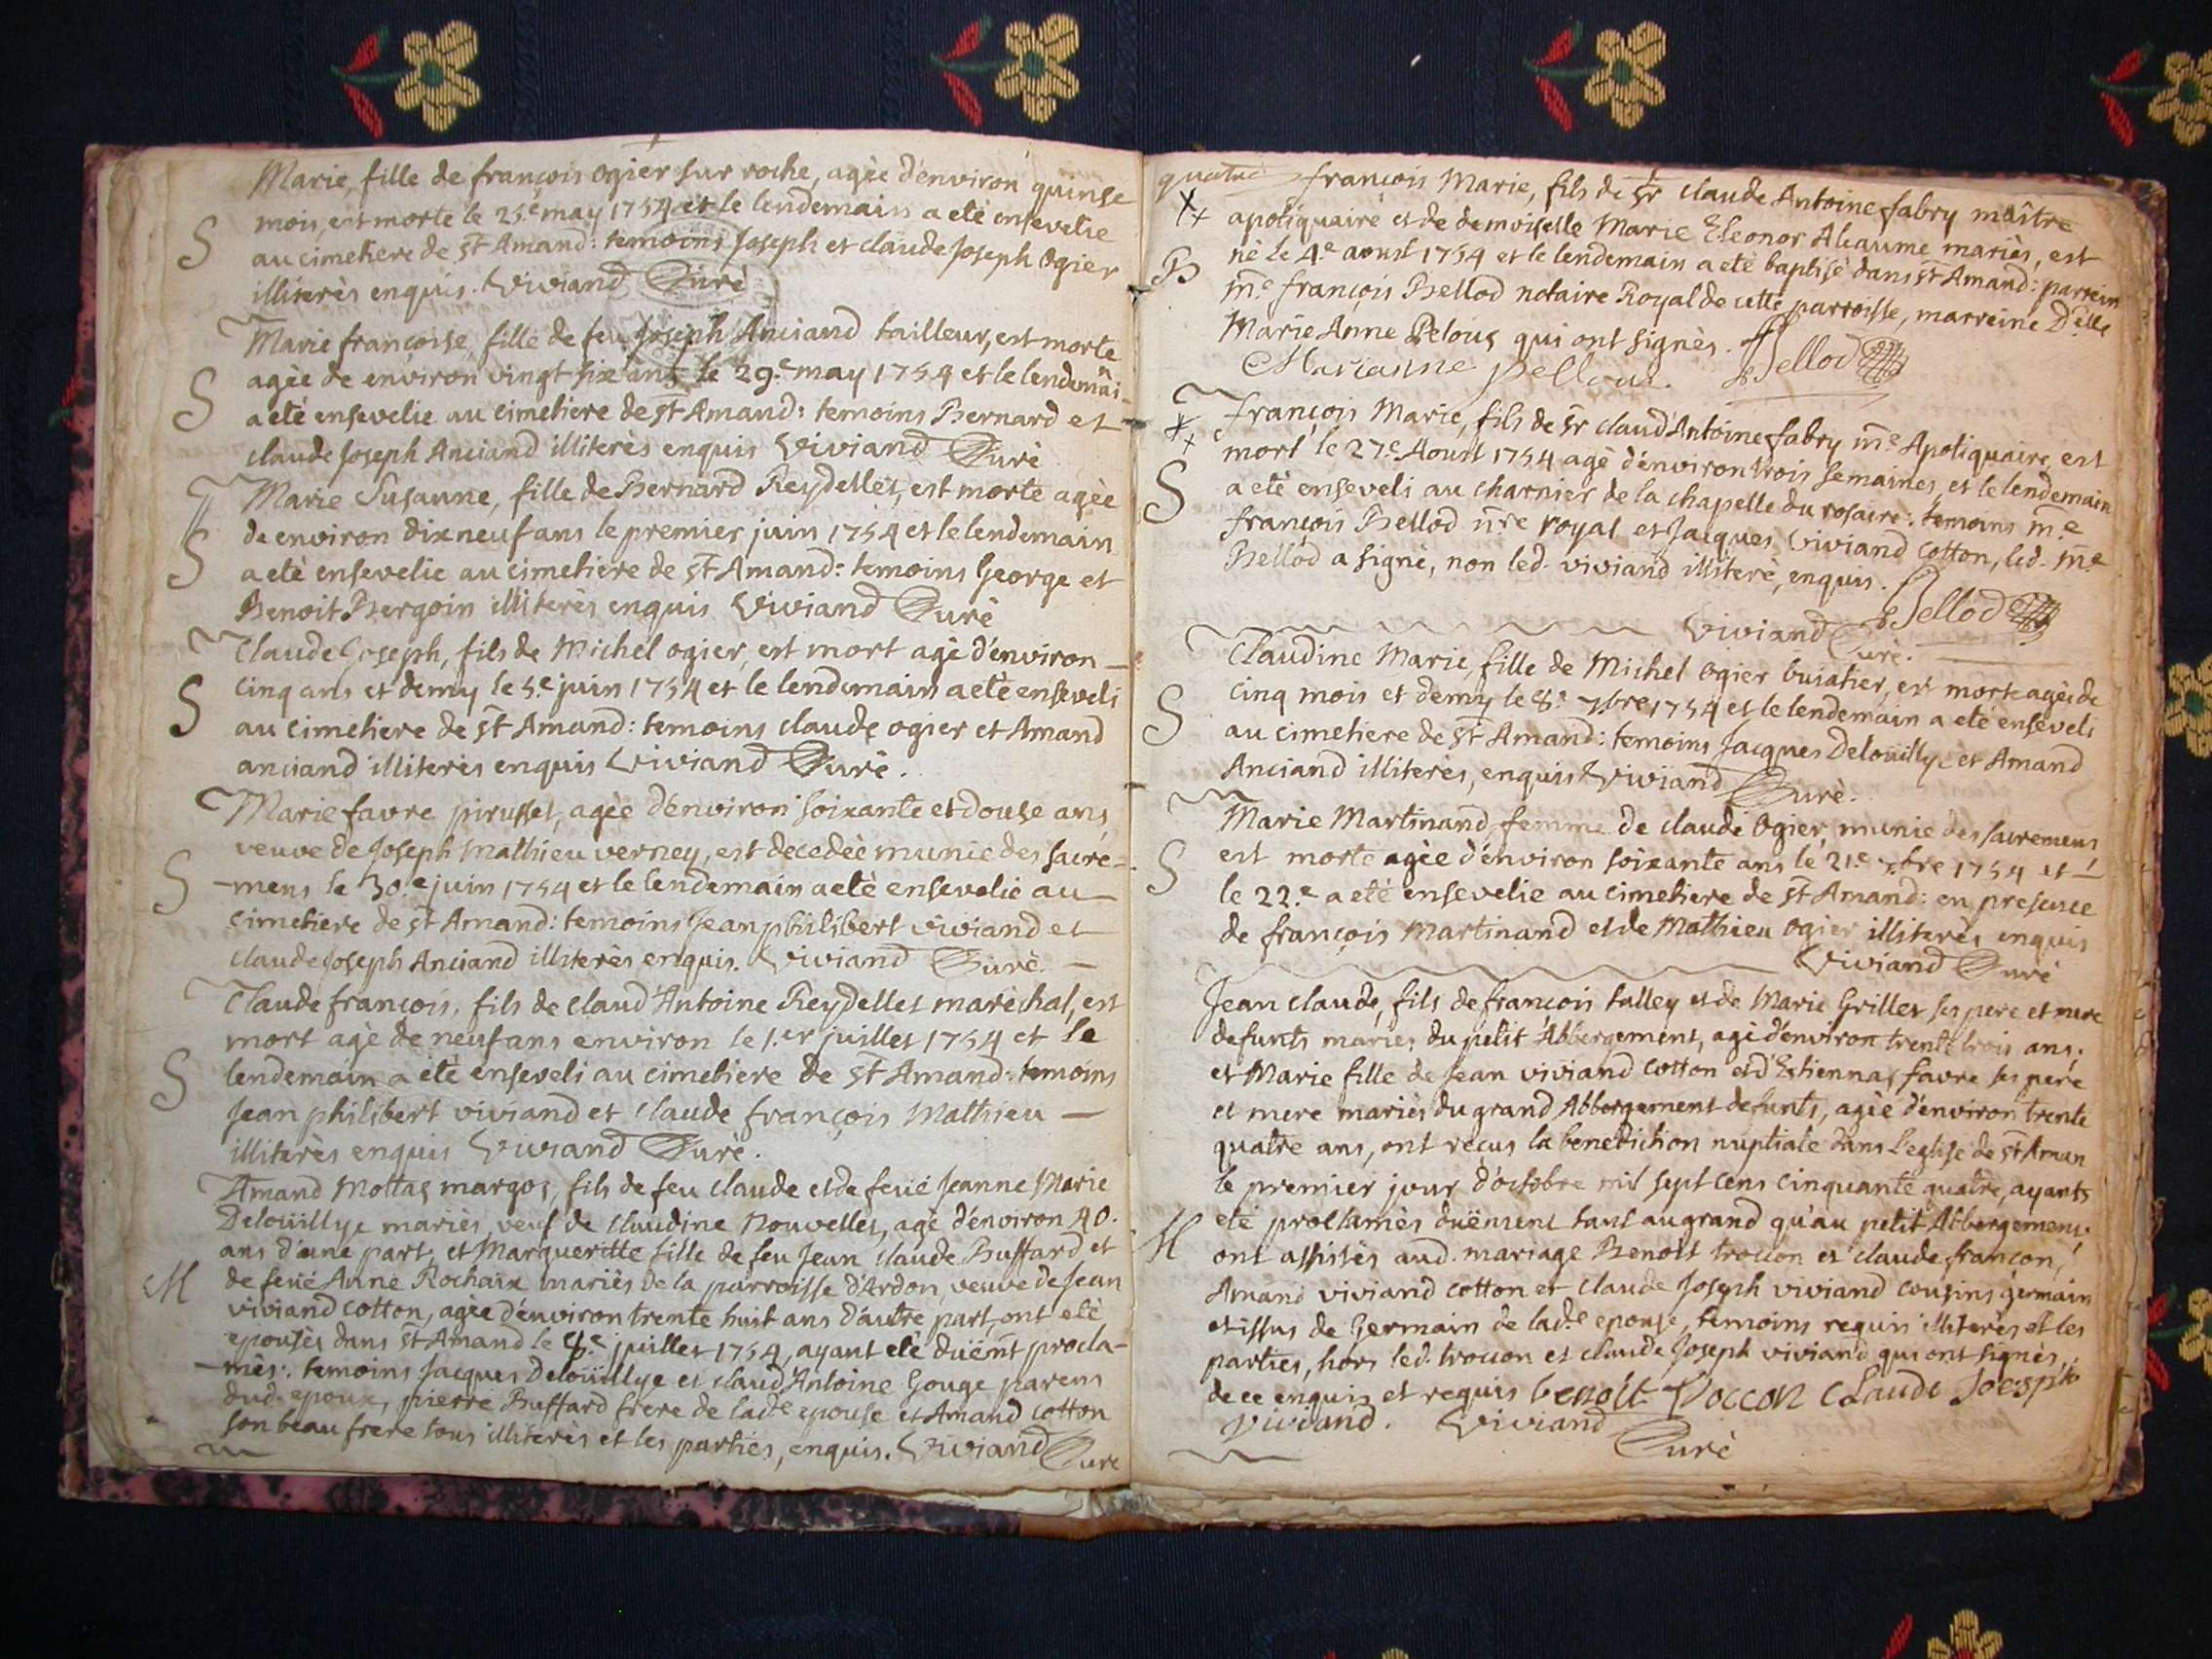 Marie, fille de françois ogier sur roche, agèe d'énviron quinse
mois, est morte le 25.e may 1754 et le lendemain a etè ensevelie
S au cimetiere de st Amand: temoins Joseph et claude Joseph Ogier
illiterès enquis. Viviand Curè
Marie françoise, fille de feu Joseph Anciand tailleur, est morte
agèe de environ vingt six ans le 29.e may 1754 et le lendemai-
S a etè ensevelie au cimetiere de st Amand: temoins Bernard et
claude Joseph Anciand illiterès enquis Viviand Curè
Marie Susanne, fille de Bernard Reydellet, est morte agèe
de environ dix neuf ans le premier juin 1754 et le lendemain
S a etè ensevelie au cimetiere de st Amand: temoins George et
Benoit Bergoin illiterès enquis Viviand Curè
Claude Joseph, fils de Michel ogier, est mort agè d'énviron
cinq ans et demy le 5.e juin 1754 et le lendemain a etè enseveli
S au cimetiere de st Amand: temoins claude ogier et Amand
anciand illiterès enquis Viviand Curè.
Marie favre pirusset, agèe d'énviron soixante et douse ans
veuve de Joseph Mathieu verney, est decedèe munie des sacre=
S -mens le 30.e juin 1754 et le lendemain a etè ensevelie au
cimetiere de st Amand: temoins Jean philibert viviand et
claude Joseph Anciand illiterès enquis. Viviand Curè.
Claude françois, fils de claud'Antoine Reydellet marèchal, est
mort agè de neuf ans environ le 1.er juillet 1754 et le
S lendemain a etè enseveli au cimetiere de st Amand: temoins
Jean philibert viviand et claude françois Mathieu
illiterès enquis Viviand Curè.
Amand Mottas margos, fils de feu claude et de feuë Jeanne Marie
Deloüillye mariès, veuf de claudine Nouvelles, agè d'énviron 40.
ans d'une part; et Margueritte fille de feu Jean claude Buffard et
M de feuë Anne Rochaix mariès de la parroisse d'Ardon, veuve de Jean
viviand cotton, agèe d'énviron trente huit ans d'autre part, ont etè
epousès dans st Amand le juillet 1754, ayant etè duëmt procla-
-mès: temoins Jacques Deloüillye et claud'Antoine Gouge parens
dud. epoux, pierre Buffard frere de lad.e epouse et Amand cotton
son beau frere tous illiterès et les parties, enquis. Viviand Curè
quatre françois Marie, fils de sr claude Antoine fabry maître
apotiquaire et de demoiselle Marie Eleonor Aleaume mariès, est
B nè le 4.e aoust 1754 et le lendemain a etè baptisè dans st Amand: parrein
m.e françois Bellod notaire Royal de cette parroisse, marreine D.elle
Marie Anne Pelous qui ont signès.
Marianne pellous. Bellod
françois Marie, fils de sr claud'Antoine fabry m.e Apotiquaire, est
mort le 27.e Aoust 1754 agè d'énviron trois semaines, et le lendemain
S a etè enseveli au charnier de la chapelle du rosaire: temoins m.e
françois Bellod n.re royal et Jacques Viviand cotton, led. m.e
Bellod a signè, non led. viviand illiterè, enquis. Bellod
Viviand Curè.
Claudine Marie, fille de Michel ogier buiatier, est morte agèe de
cinq mois et demy le 8.e 7bre 1754 et le lendemain a etè enseveli
S au cimetiere de st Amand: temoins Jacques Deloüillye et Amand
Anciand illiterès, enquis Viviand Curè.
Marie Martinand femme de claude Ogier munie des sacremens
S est morte agèe d'énviron soixante ans le 21.e 7bre 1754 et
le 22.e a etè ensevelie au cimetiere de st Amand: en presence
de françois Martinand et de Mathieu Ogier illiterès enquis
Viviand Curè
Jean claude, fils de francois talley et de Marie Grillet ses pere et mere
defunts mariès du petit Abbergement, agè d'énviron trente trois ans;
et Marie fille de Jean viviand cotton et d'Estiennas favre ses pere
et mere mariès du grand Abbergement defunts, agèe d'énviron trente
quatre ans, ont reçus la benediction nuptiale dans l'eglise de st Aman
le premier jour d'octobre mil sept cens cinquante quatre, ayants
etè proclamès duëment tant au grand qu'au petit Abbergement.
M ont assistès aud. mariage Benoît troccon et claude françon,
Amand viviand cotton et claude Joseph viviand cousins germain
et issus de Germain de lad.e epouse, temoins requis illiterès et les
parties, hors led. troccon et claude Joseph viviand qui ont signès,
de ce enquis et requis benoît troccon claude Joesph
viviand. Viviand
Curè